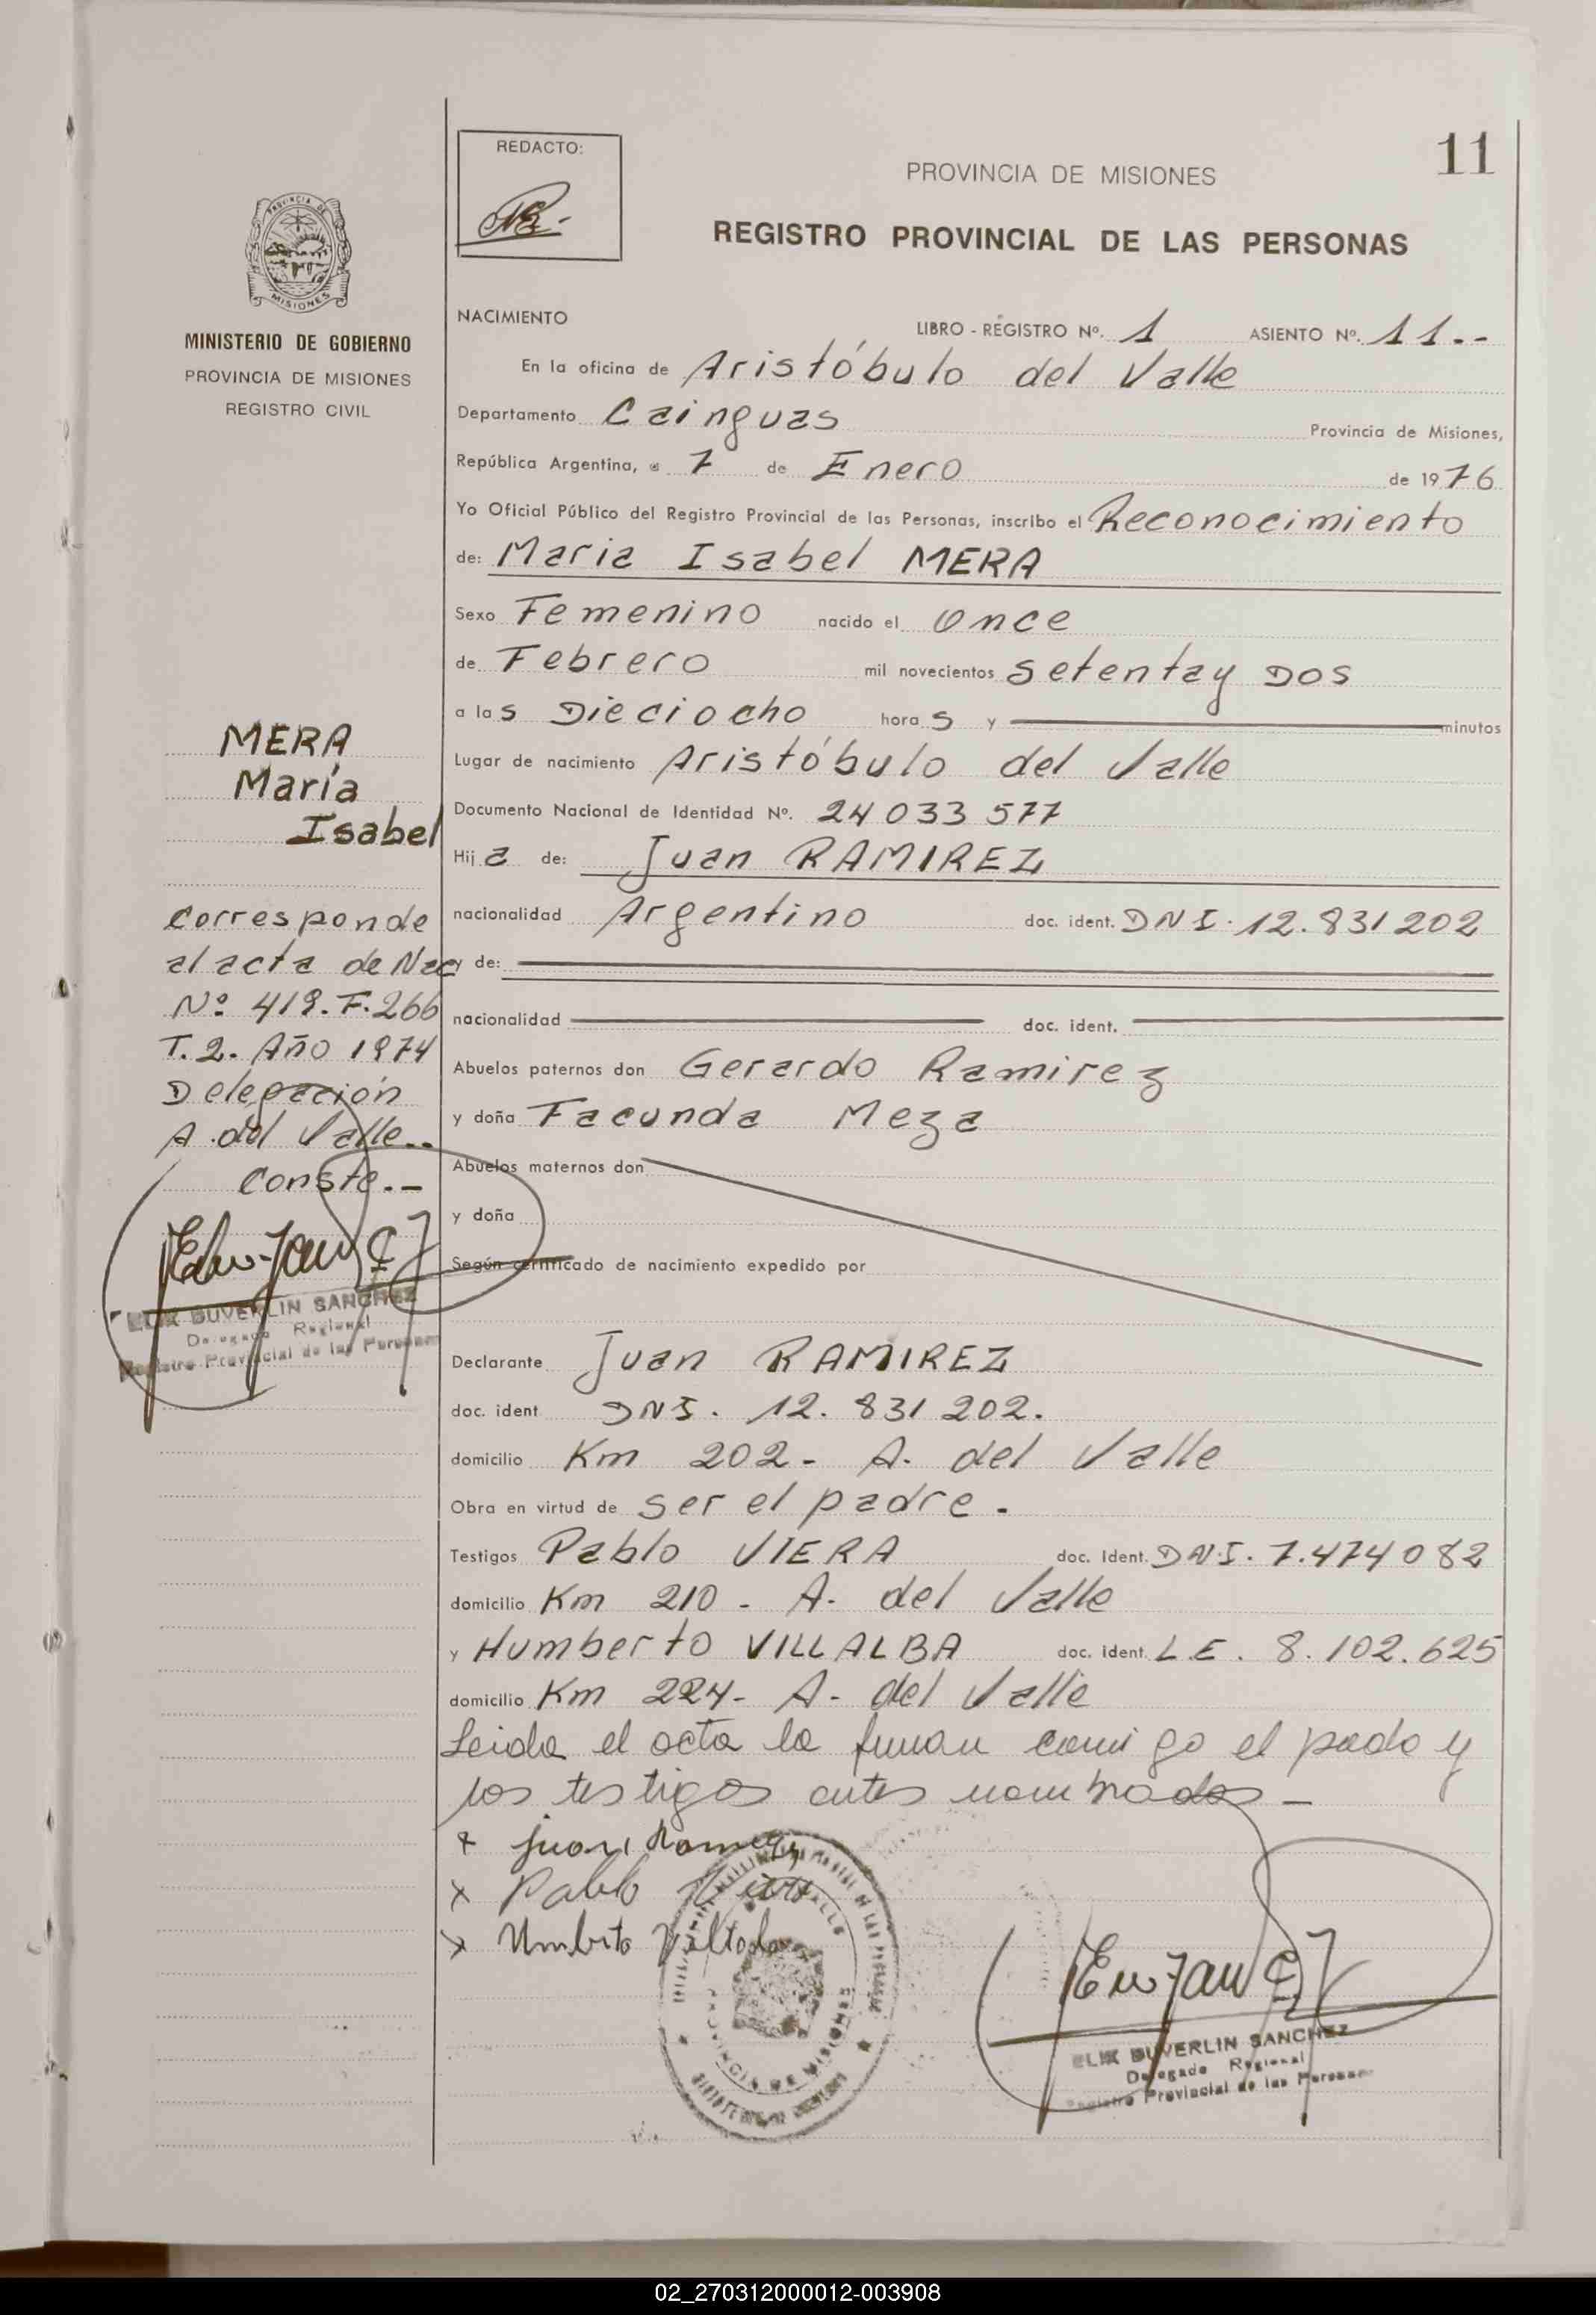 11
REDACTO:
PROVINCIA DE MISIONES
REGISTRO PROVINCIAL DE LAS PERSONAS
PROVINCIA DE
MISIONES
MINISTERIO DE GOBIERNO
PROVINCIA DE MISIONES
REGISTRO CIVIL
NACIMIENTO
LIBRO - REGISTRO Nº. 1 ASIENTO Nº. 11.--
En la oficina de Aristóbulo del Valle
Departamento Cainguas Provincia de Misiones,
República Argentina, a 7 de Enero de 1976
Yo Oficial Público del Registro Provincial de las Personas, inscribo el Reconocimiento
de: Maria Isabel MERA
Sexo Femenino nacido el Once
de Febrero mil novecientos setentay Dos
a las Dieciocho horas y minutos
Lugar de nacimiento Aristóbulo del Valle
Documento Nacional de Identidad Nº. 24 033 577
Hija de: Juan RAMIREZ
nacionalidad Argentino doc. ident. DNI. 12.831202
y de:
nacionalidad doc. ident.
Abuelos paternos don Gerardo Ramirez
y doña Facunda Meza
Abuelos maternos don
y doña
Según certificado de nacimiento expedido por
Declarante Juan RAMIREZ
doc. ident DNI. 12. 831 202.
domicilio Km 202- A. del Valle
Obra en virtud de ser el padre.
Testigos Pablo VIERA doc. Ident. DNI. 7.474 082
domicilio Km 210 - A. del Valle
y Humberto VILLALBA doc. ident. L.E. 8.102.625
domicilio Km 224- A- del Valle
MERA
María
Isabel
Corresponde
al acta de Nac
Nº 419. F. 266
T. 2. Año 1974
Delegación
A. del Valle..
Conste.-
ELIX DUVERLIN SANCHEZ
Delegado Regional
Registro Provincial de las Personas
Leida el acta la firman conmigo el padre y
los testigos antes nombrados -
x Juan Ramirez
x Pablo Viera
x Umbito
PROVINCIA DE MISIONES
ELIX DUVERLIN SANCHEZ
Delegado Regional
Registro Provincial de las Personas
02_270312000012-003908